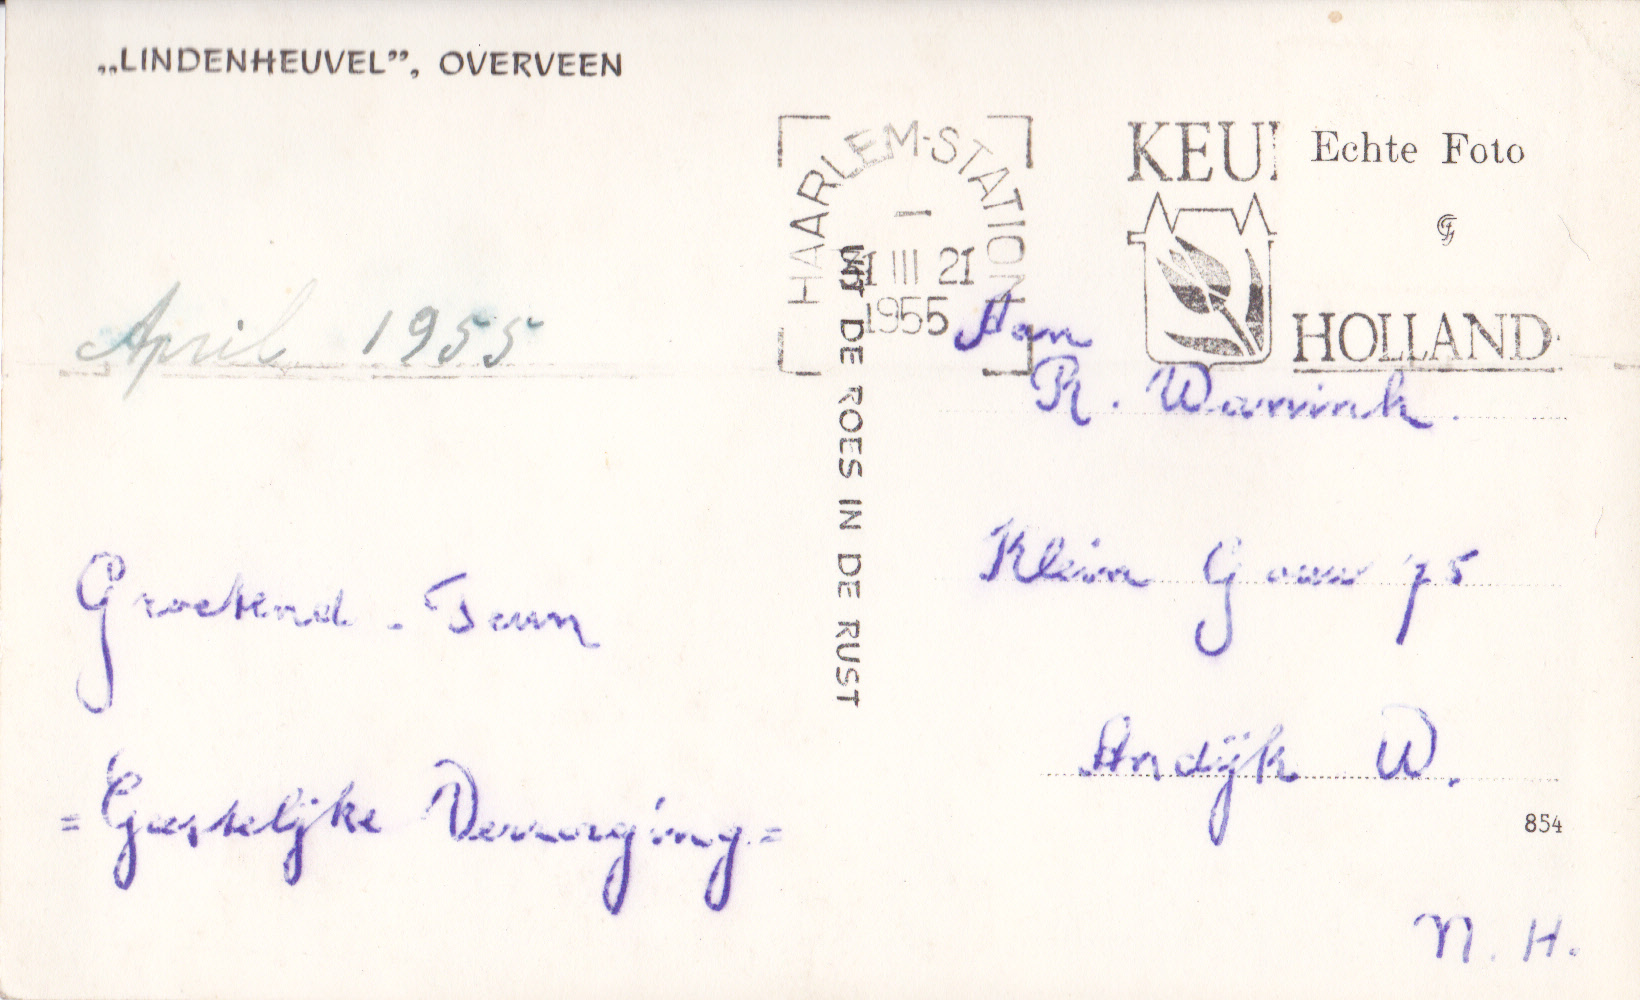 „LINDENHEUVEL”, OVERVEEN
April 1955
Groetend. Teun
= Geestelijke Verzorging =
HAARLEM-STATION
31 III 21
1955
UIT DE ROES IN DE RUST
KEU
HOLLAND
Echte Foto
Aan
R. Wannink.
Klein Gouw 75
Andijk W.
854
N. H.